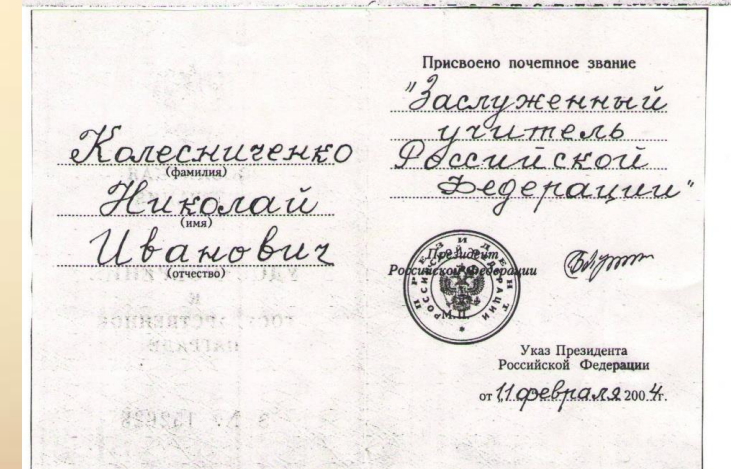 Колесниченко
(фамилия)
Николай
(имя)
Иванович
(отчество)
Присвоено почетное звание
"Заслуженный
учитель
Российской
Федерации"
Президент
Российской Федерации
ПРЕЗИДЕНТ
РОССИЙСКОЙ ФЕДЕРАЦИИ
М.П.
Указ Президента
Российской Федерации
от 11 февраля 2004г.